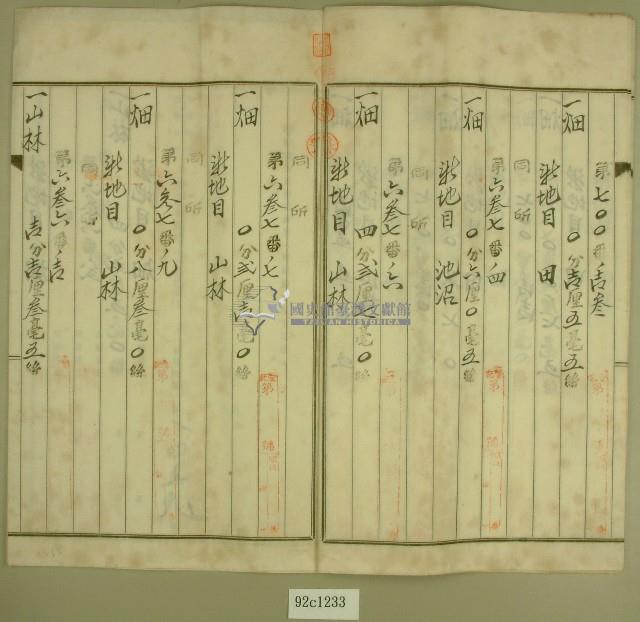 第七〇〇番ノ壱叁
一畑 〇分壱厘五毫五絲
新地目 田
同所
第六叁七番ノ四
一畑 〇分六厘〇毫五絲
新地目 池沼
同所
第六叁七番ノ六
一畑 四分弐厘 毫〇絲
新地目 山林
同所
第六叁七番ノ七
一畑 〇分弐厘壱毫〇絲
新地目 山林
同所
第六叁七番ノ九
一畑 〇分八厘叁毫〇絲
新地目 山林
同所
第六叁六番ノ壱
一山林 壱分壱厘叁毫五絲
國史館臺灣文獻館
TAIWAN HISTORICA
92c1233